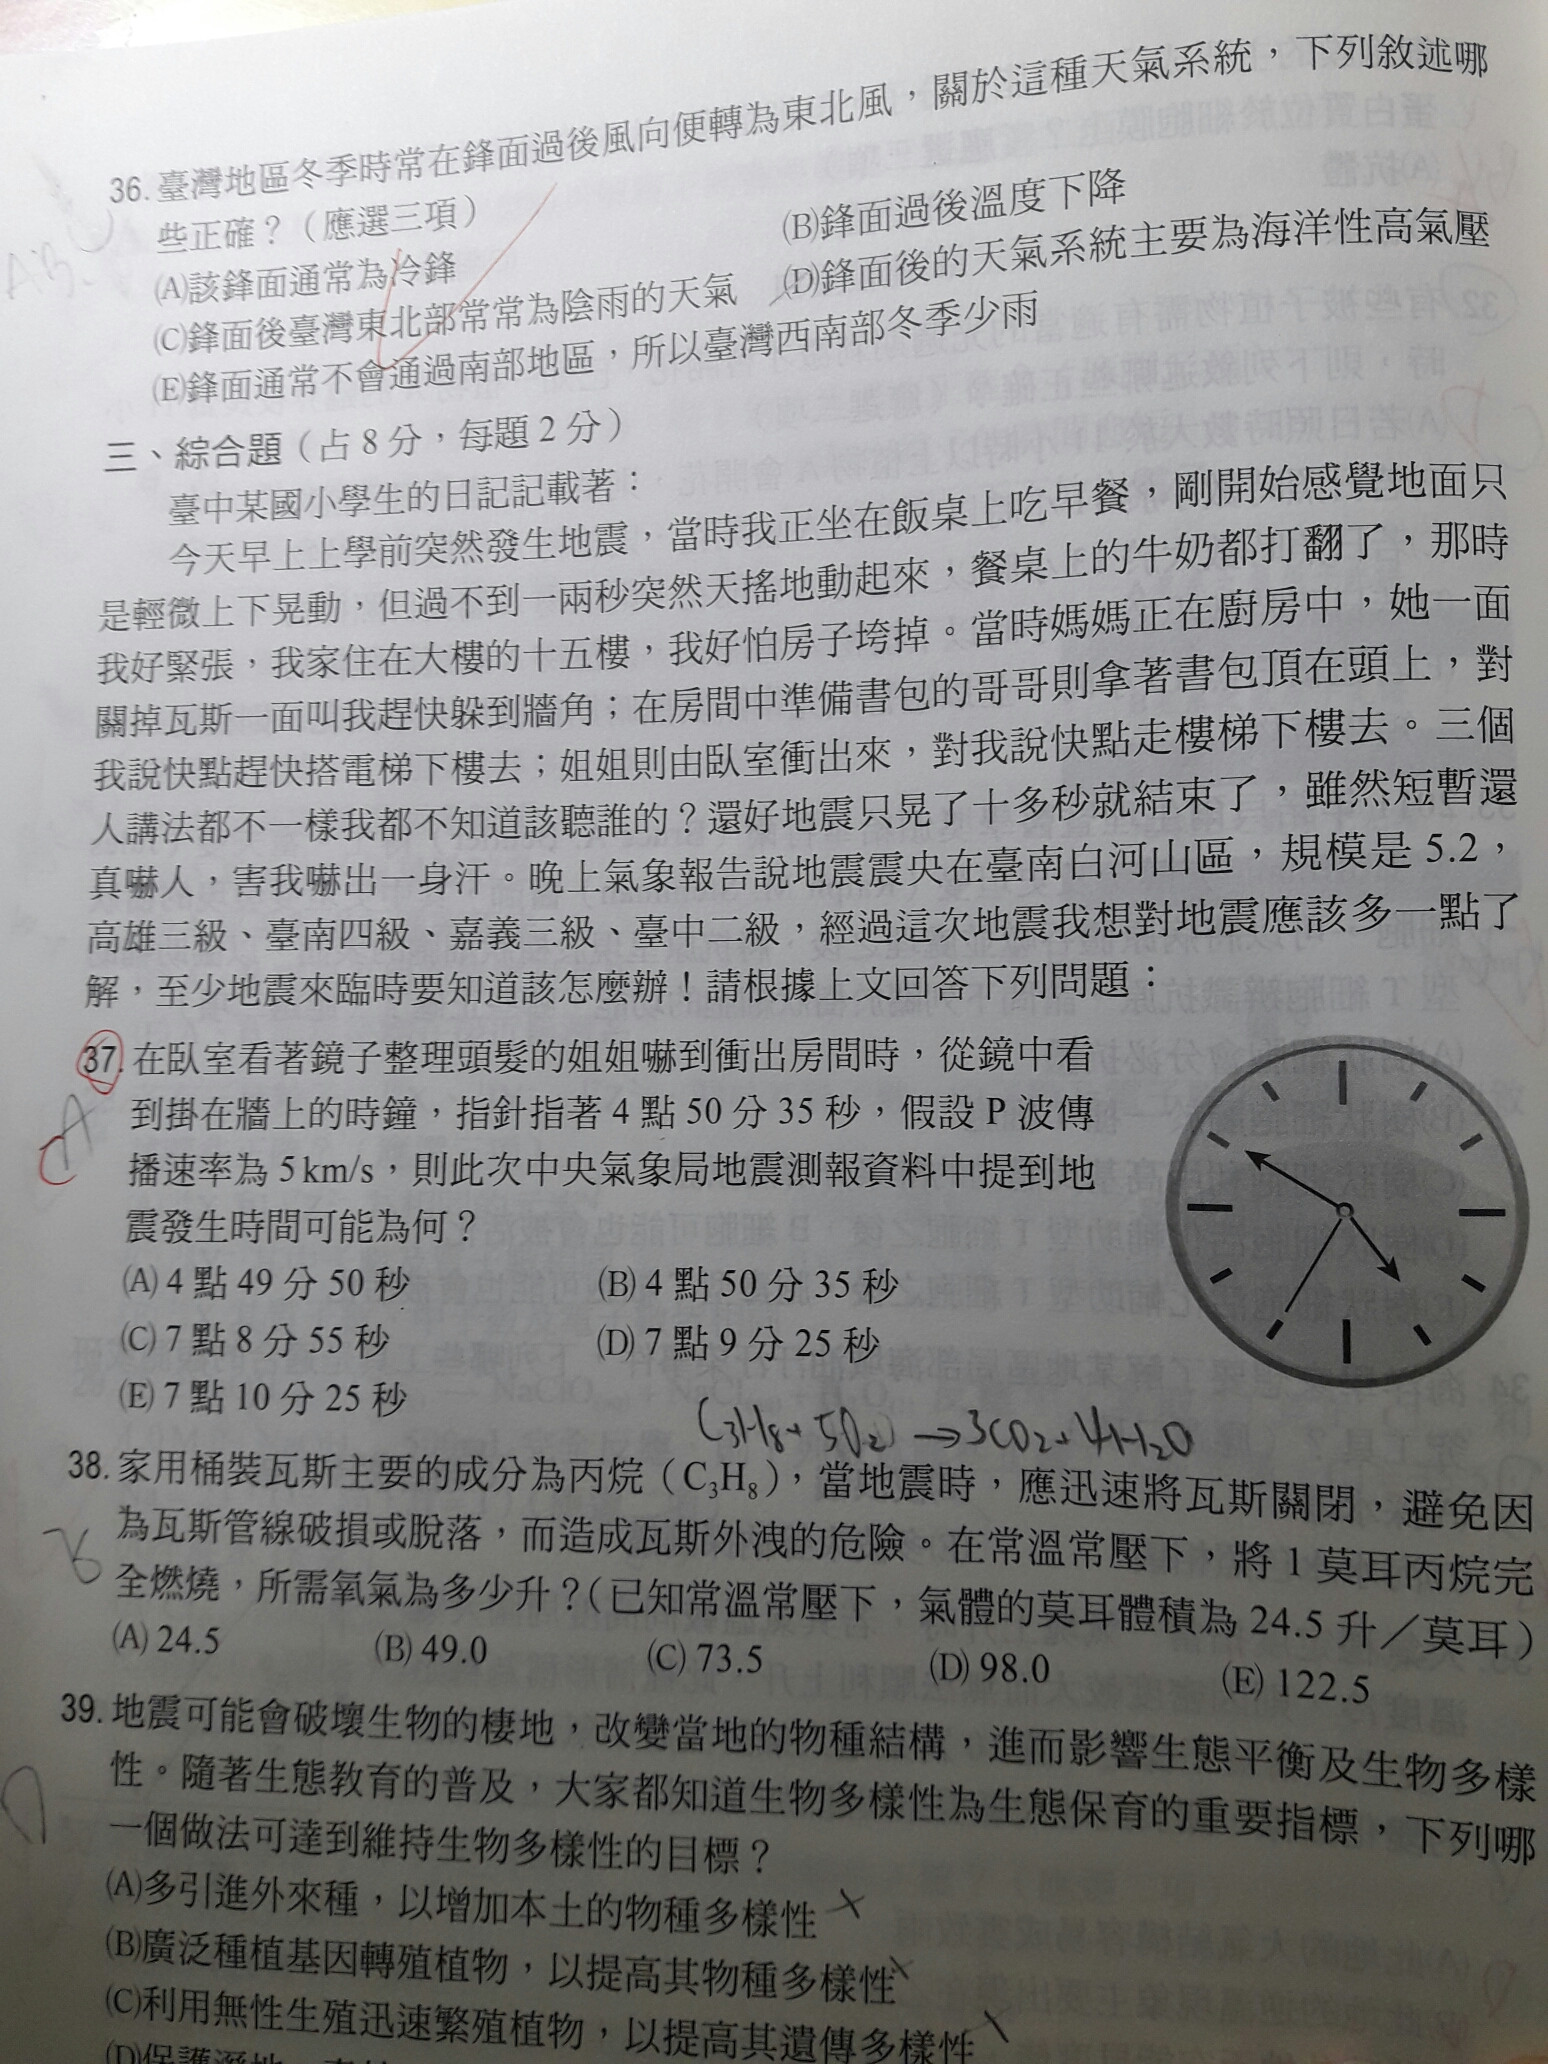 36. 臺灣地區冬季時常在鋒面過後風向便轉為東北風，關於這種天氣系統，下列敘述哪
些正確？（應選三項）
(A)該鋒面通常為冷鋒 (B)鋒面過後溫度下降
(C)鋒面後臺灣東北部常常為陰雨的天氣 (D)鋒面後的天氣系統主要為海洋性高氣壓
(E)鋒面通常不會通過南部地區，所以臺灣西南部冬季少雨
三、綜合題（占 8 分，每題 2 分）
臺中某國小學生的日記記載著：
今天早上上學前突然發生地震，當時我正坐在飯桌上吃早餐，剛開始感覺地面只
是輕微上下晃動，但過不到一兩秒突然天搖地動起來，餐桌上的牛奶都打翻了，那時
我好緊張，我家住在大樓的十五樓，我好怕房子垮掉。當時媽媽正在廚房中，她一面
關掉瓦斯一面叫我趕快躲到牆角；在房間中準備書包的哥哥則拿著書包頂在頭上，對
我說快點趕快搭電梯下樓去；姐姐則由臥室衝出來，對我說快點走樓梯下樓去。三個
人講法都不一樣我都不知道該聽誰的？還好地震只晃了十多秒就結束了，雖然短暫還
真嚇人，害我嚇出一身汗。晚上氣象報告說地震震央在臺南白河山區，規模是 5.2，
高雄三級、臺南四級、嘉義三級、臺中二級，經過這次地震我想對地震應該多一點了
解，至少地震來臨時要知道該怎麼辦！請根據上文回答下列問題：
37. 在臥室看著鏡子整理頭髮的姐姐嚇到衝出房間時，從鏡中看
到掛在牆上的時鐘，指針指著 4 點 50 分 35 秒，假設 P 波傳
播速率為 5 km/s，則此次中央氣象局地震測報資料中提到地
震發生時間可能為何？
(A) 4 點 49 分 50 秒 (B) 4 點 50 分 35 秒
(C) 7 點 8 分 55 秒 (D) 7 點 9 分 25 秒
(E) 7 點 10 分 25 秒
C3H8+5O2→3CO2+4H2O
38. 家用桶裝瓦斯主要的成分為丙烷（C₃H₈），當地震時，應迅速將瓦斯關閉，避免因
為瓦斯管線破損或脫落，而造成瓦斯外洩的危險。在常溫常壓下，將 1 莫耳丙烷完
全燃燒，所需氧氣為多少升？（已知常溫常壓下，氣體的莫耳體積為 24.5 升／莫耳）
(A) 24.5 (B) 49.0 (C) 73.5 (D) 98.0 (E) 122.5
39. 地震可能會破壞生物的棲地，改變當地的物種結構，進而影響生態平衡及生物多樣
性。隨著生態教育的普及，大家都知道生物多樣性為生態保育的重要指標，下列哪
一個做法可達到維持生物多樣性的目標？
(A)多引進外來種，以增加本土的物種多樣性
(B)廣泛種植基因轉殖植物，以提高其物種多樣性
(C)利用無性生殖迅速繁殖植物，以提高其遺傳多樣性
(D)保護濕地